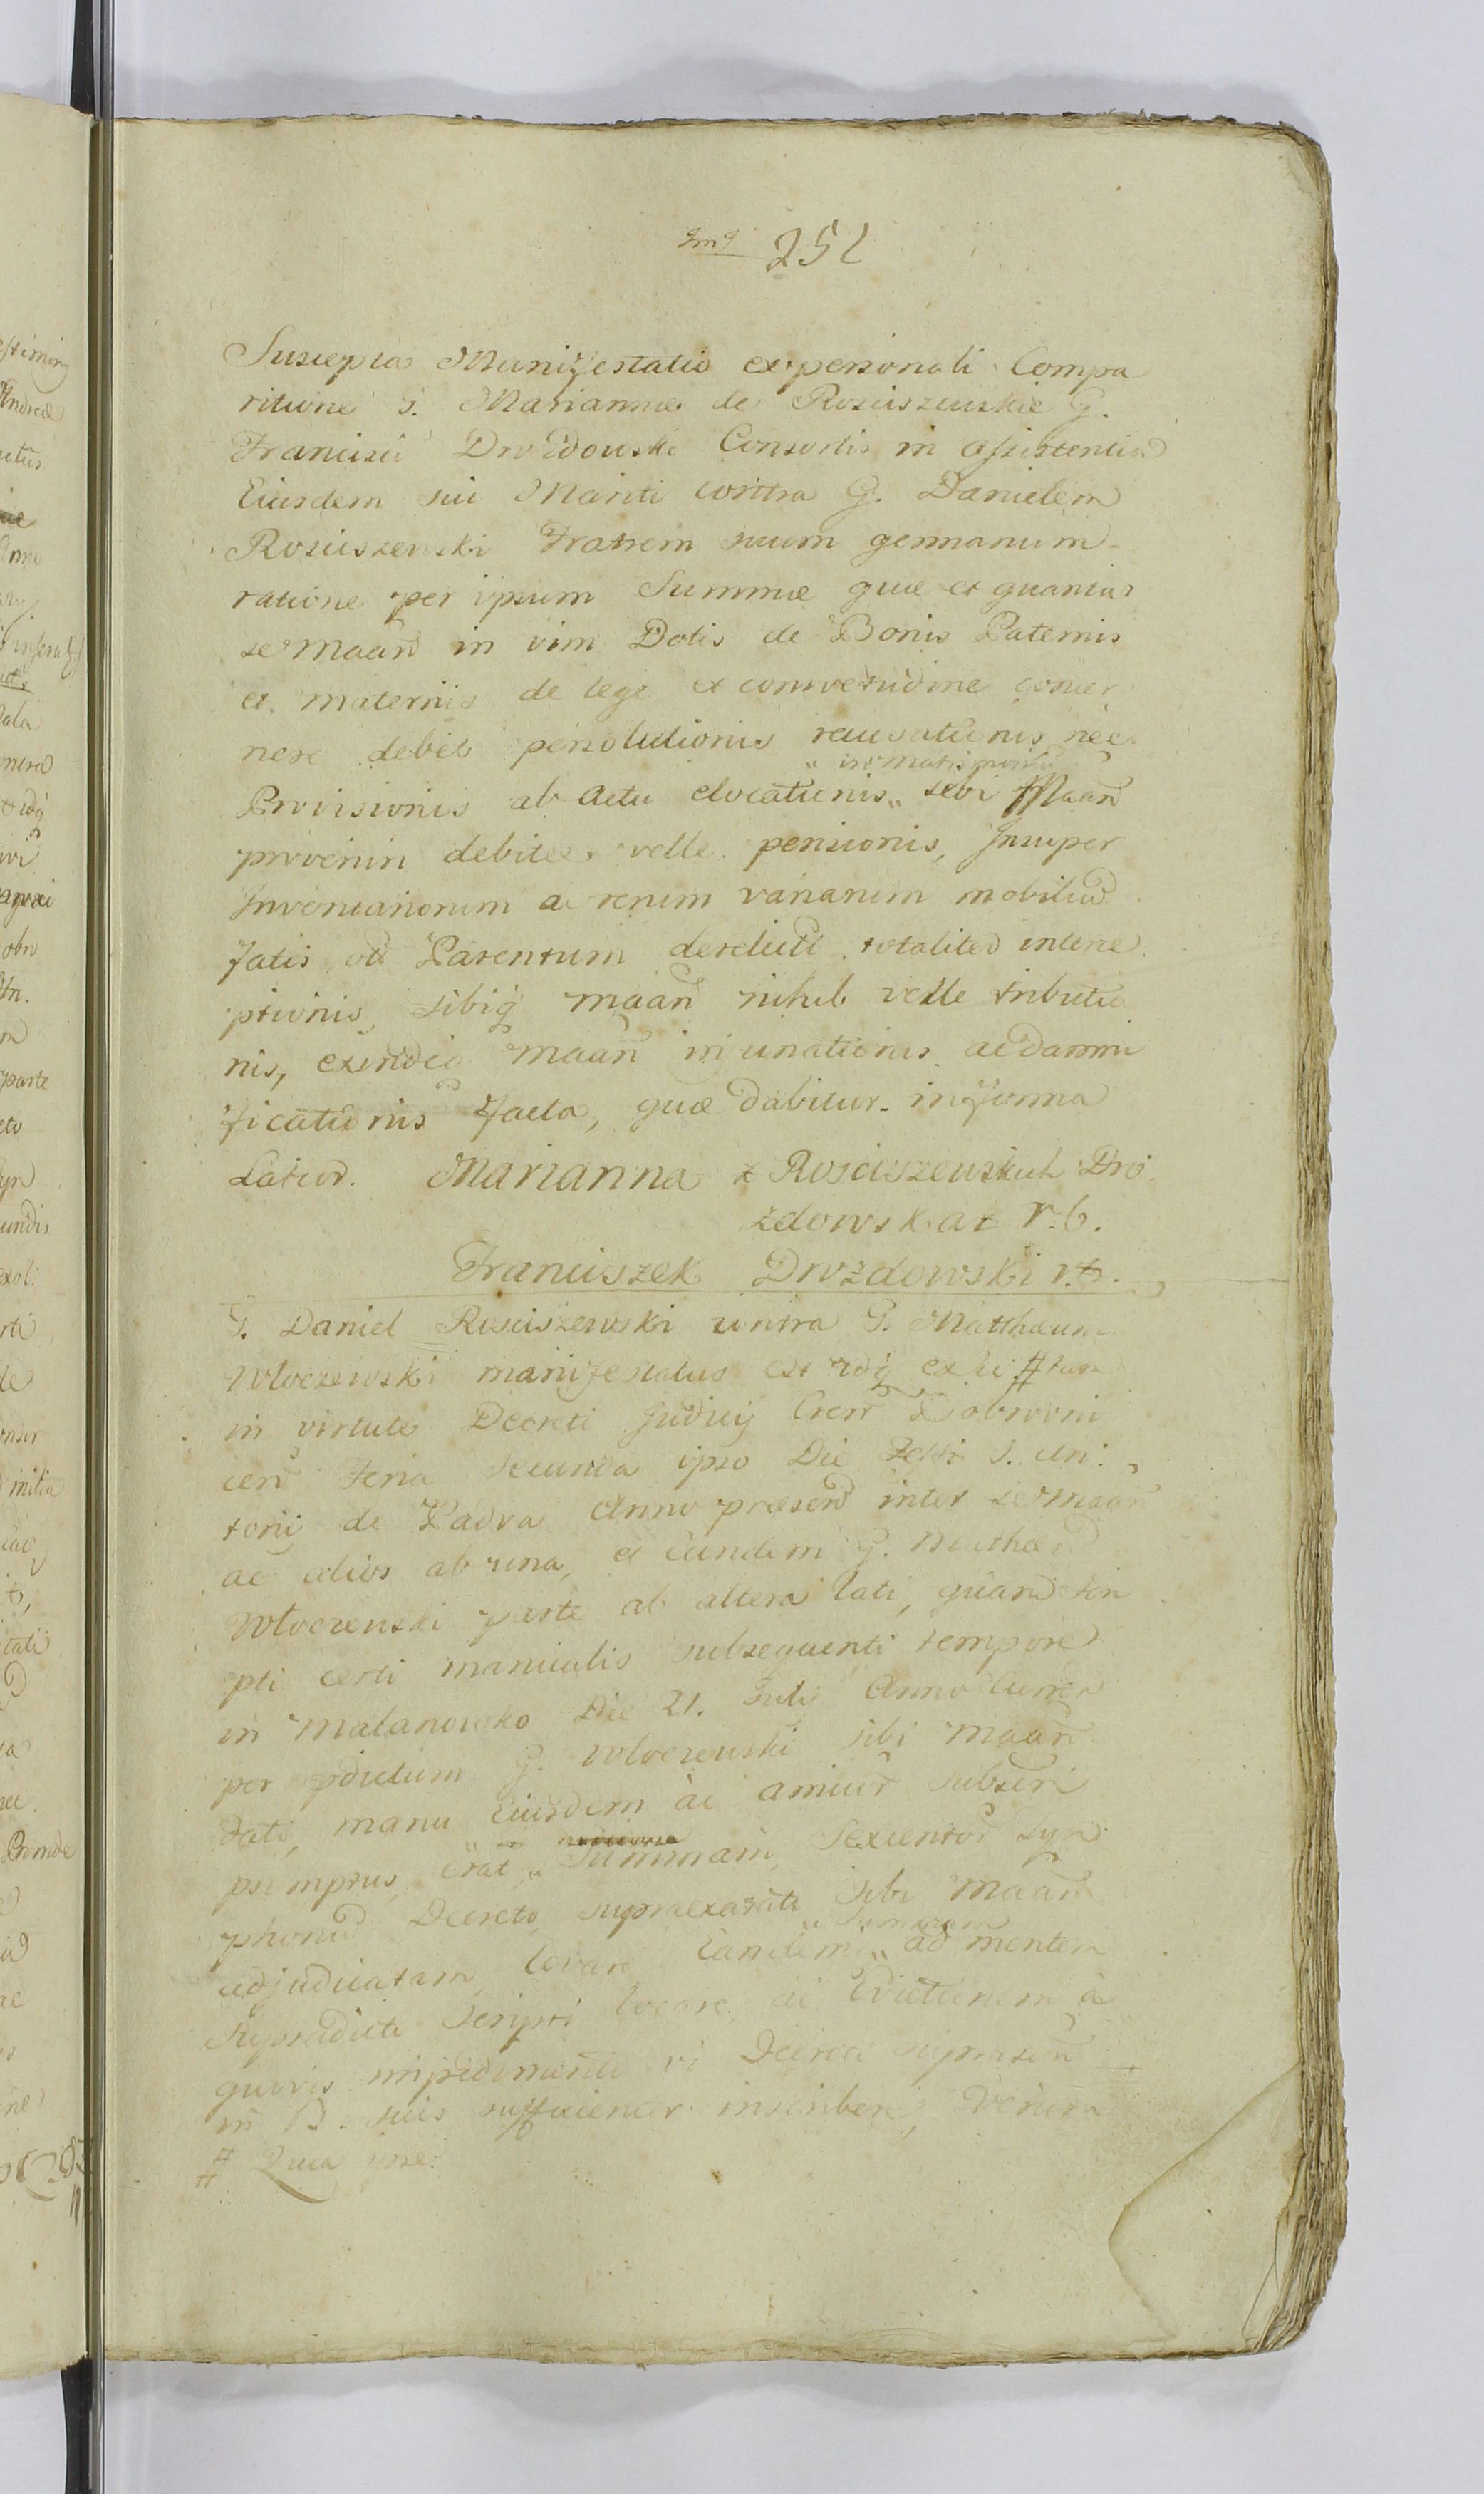 251
Suscepta Manifestatio ex personali Compa
ritione G. Mariannæ de Rosciszewskie G.
Francisci Drozdowski Consortis in assistentia
Eiusdem sui Mariti contra G. Danielem
Rosciszewski Fratrem suum germanum
ratione per ipsum Summæ quæ et quanta
se Maan in vim Dotis de Bonis Paternis
et maternis de lege et consvetudine concer
nere debet persolutionis recusationis nec
Provisionis ab Actu elocationis „ sibi Maan
„ in Matrimoniu
provenire debite velle pensionis, Insuper
Inventariorum ac rerum variarum mobiliu
fatis oli Parentum derelict totaliter interce
ptionis, sibiq maan nihil velle tributio
nis, exindeq maan injuriationis ac damni
ficationis facta, quæ dabitur in forma
Latior. Marianna z Rosciszewskich Dro
zdowska r. b.
Franciszek Drozdowski r. b.
G. Daniel Rosciszewski contra G. Matthæum
Wloczewski manifestatus est idq ex eo # tam
in virtute Decreti Judicij Cren Dobrzyni
cen Feria Secunda ipso Die Festi S. An:
tonij de Padva Anno præsen inter se maan
ac alios ab una, et eundem G. Matthæu
Wloczewski parte ab altera lati, quam scri
pti certi manualis subsequenti tempore
in Malanowko Die 21. Julij Anno Curren
per pdictum G. Wloczewski sibi maan
dati, manu Eiusdem ac amicor subscri
psi mptus erat, „ Summam Sexentor Syn
phonu Decreto supraexarato sibi Maan
adjudicatam levare, Eandem „ ad mentem
„ Summam
supradicti Scripti locare, ac Evictionem à
quovis impedimento vi Decreti supra
in B. suis sufficienter inscribere, Verum
# Quia ipse